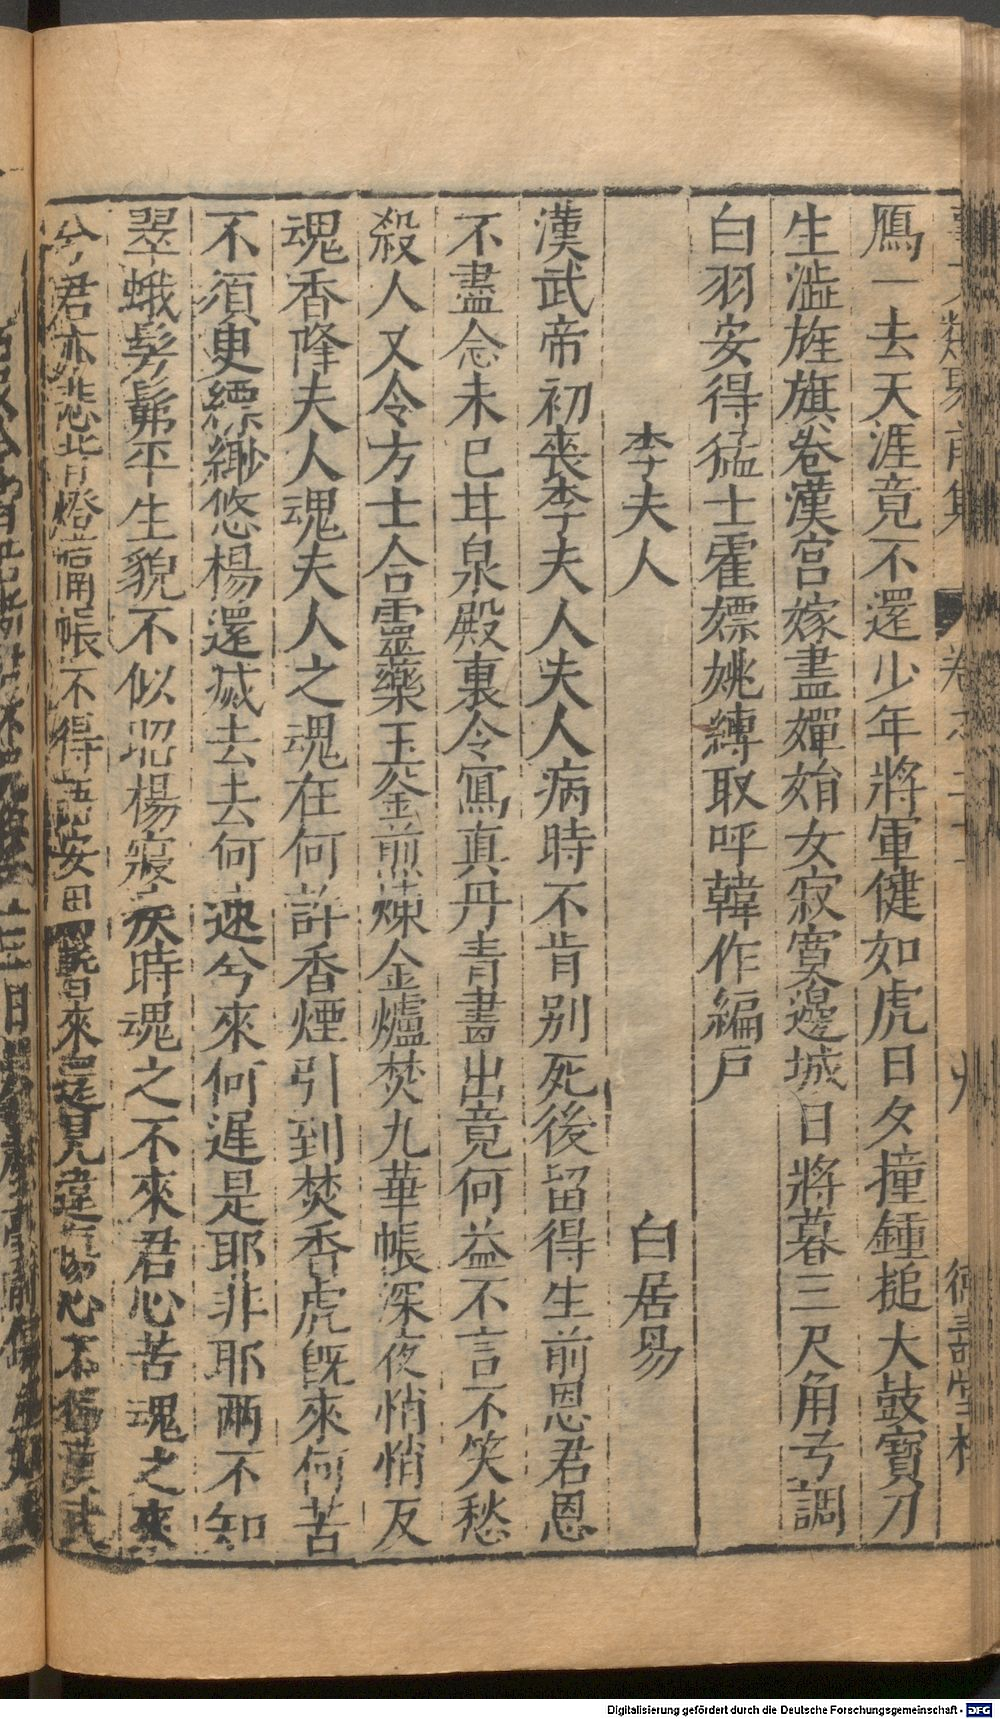 事文類聚前集 卷之二十 八 德壽堂梓
鴈一去天涯竟不還少年將軍健如虎日夕撞鍾搥大鼓寶刀
生澁旌旗卷漢宮嫁盡嬋娟女寂寞邊城日將暮三尺角弓調
白羽安得猛士霍嫖姚縛取呼韓作編戶
李夫人 白居易
漢武帝初喪李夫人夫人病時不肯别死後留得生前恩君恩
不盡念未已甘泉殿裏令寫真丹青畫出竟何益不言不笑愁
殺人又令方士合靈藥玉釜煎煉金爐焚九華帳深夜悄悄反
魂香降夫人魂夫人之魂在何許香煙引到焚香處旣來何苦
不須臾縹緲悠楊還滅去去何速兮來何遲是耶非耶兩不知
翠蛾髣髴平生貌不似昭楊寢疾時魂之不來君心苦魂之來
兮君亦悲背燈隔帳不得語安用暫來還見違傷心不獨漢武
Digitalisierung gefördert durch die Deutsche Forschungsgemeinschaft - DFG